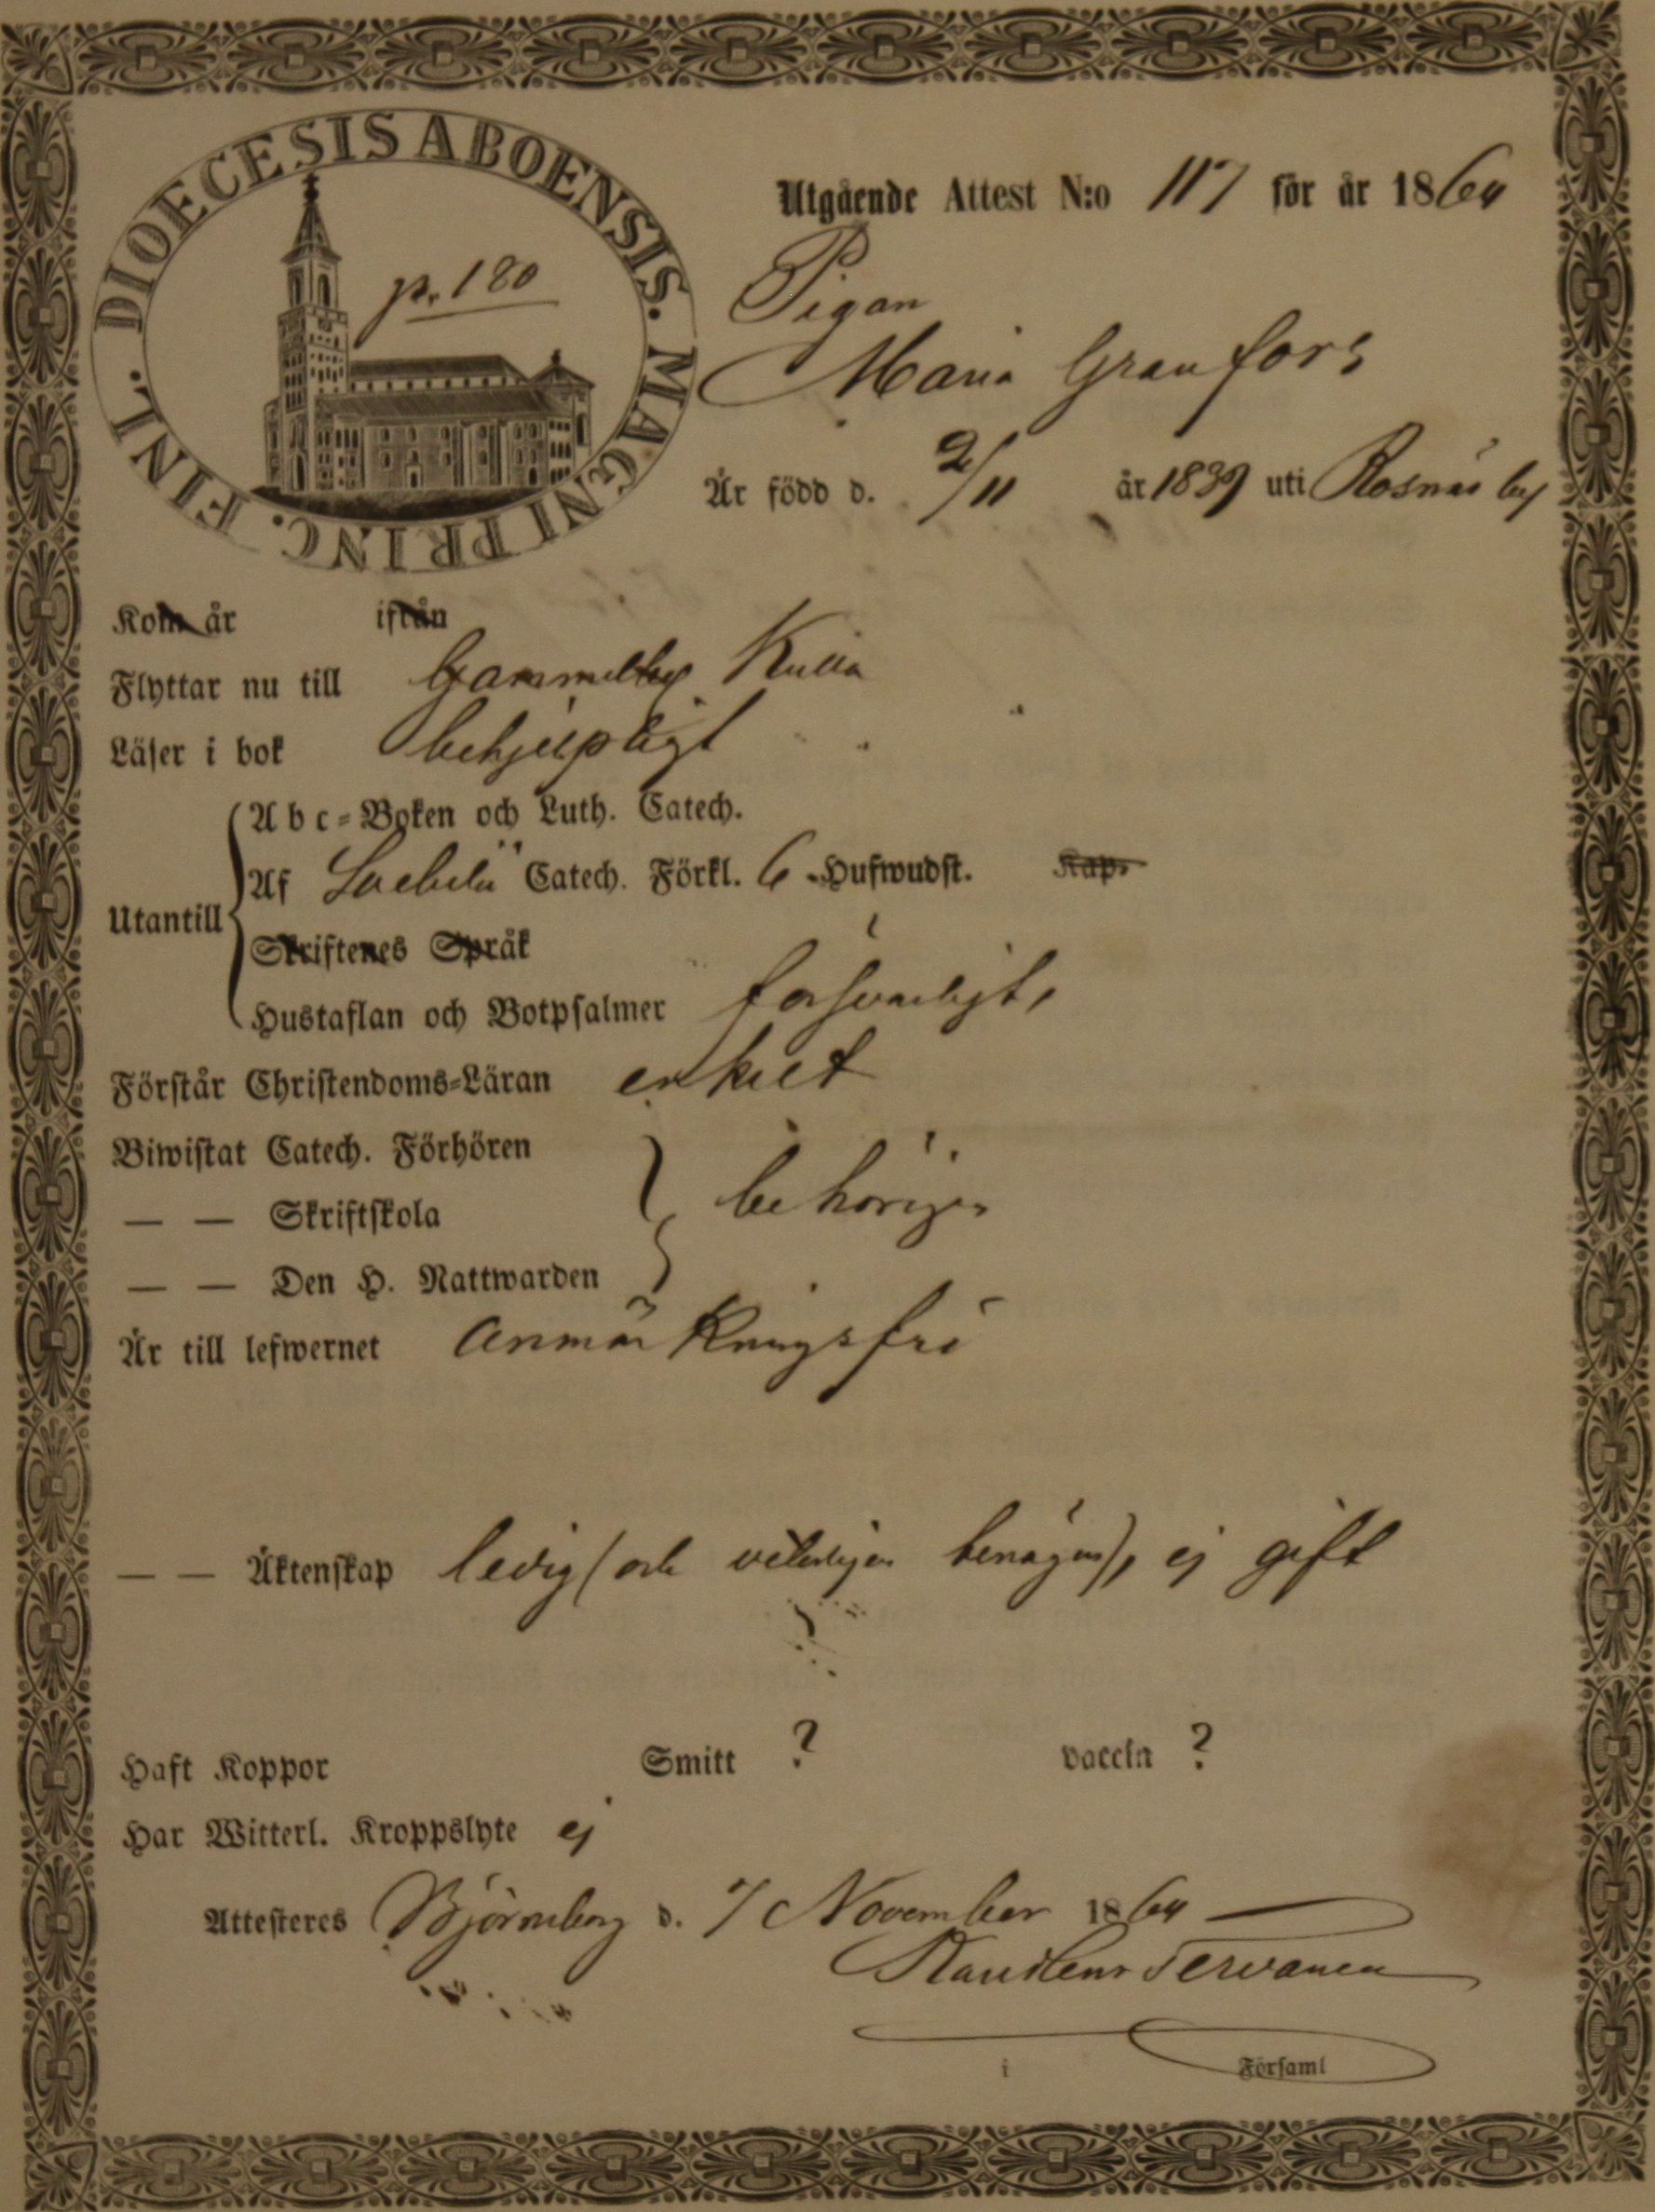 DIOECESIS ABOENSIS. MAGNI PRINC. FINL.
p. 180
Utgående Attest N:o 117 för år 1864
Pigan
Maria Granfors
Är född d. 2/11 år 1839 uti Rosnäs by
Kom år ifrån
Flyttar nu till Gammelby Kulla
Läser i bok behjelpligt
Utantill
Abc-Boken och Luth. Catech.
Af Catech. Förkl. 6 Hufwudst. Kap.
Skriftenes Språk
Hustaflan och Botpsalmer försvarligt,
Förstår Christendoms-Läran enkelt
Biwistat Catech. Förhören
— — Skriftskola behörigen
— — Den H. Nattwarden
Är till lefwernet anmärkningsfri
— — Äktenskap ledig (och veterligen benägen), ej gift
Haft Koppor Smitt ? vaccin ?
Har Witterl. Kroppslyte ej
Attesteres Björneborg d. 7 November 1864
Tervanen
i Församl